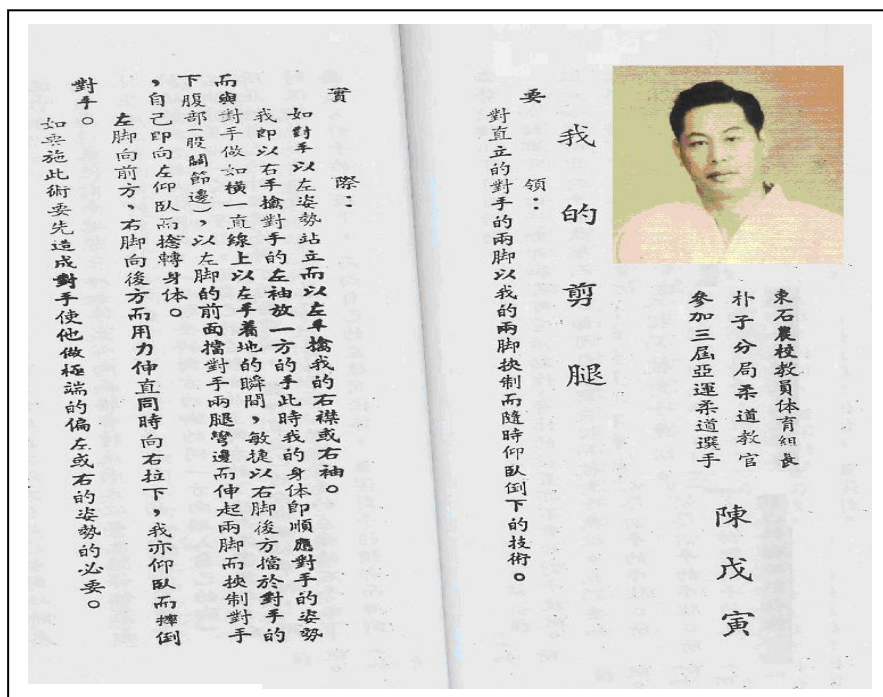 東石農校教員体育組長
朴子分局柔道教官
參加三屆亞運柔道選手
陳戊寅
我的剪腿
要領：
對直立的對手的兩脚以我的兩脚挾制而隨時仰臥倒下的技術。
實際：
如對手以左姿勢站立而以左手擒我的右襟或右袖。
我即以右手擒對手的左袖放一方的手此時我的身体即順應對手的姿勢
而與對手做如橫一直線上以左手着地的瞬間，敏捷以右脚後方擋於對手的
下腹部（股關節邊），以左脚的前面擋對手兩腿彎邊而伸起兩脚而挾制對手
，自己即向左仰臥而捻轉身体。
左脚向前方，右脚向後方而用力伸直同時向右拉下，我亦仰臥而摔倒
對手。
如要施此術要先造成對手使他做極端的偏左或右的姿勢的必要。